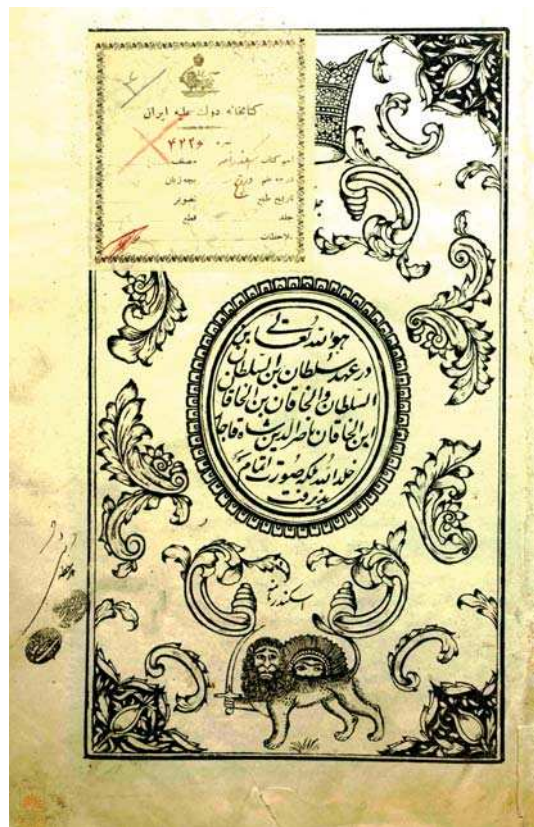 کتابخانه دولت علیه ایران
نمره ۴۲۲۶
اسم کتاب مصنف
درجه خط بچه زبان
تاریخ طبع تصویر
جلد قطع
ملاحظات
هو الله تعالی
در عهد سلطان بن السلطان بن
السلطان والخاقان بن الخاقان
ابن الخاقان ناصرالدین شاه قاجار
خلد الله ملکه صورت اتمام
پذیرفت
اسکندرنامه